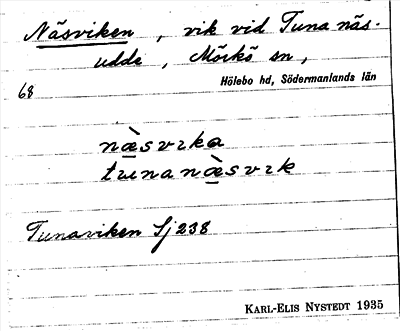 Näsviken, vik vid Tunanäs-
udde, Mörkö sn,
Hölebo hd, Södermanlands län
68
næ̀svika
tunanæ̀svik
Tunaviken Sj 238
KARL-ELIS NYSTEDT 1935